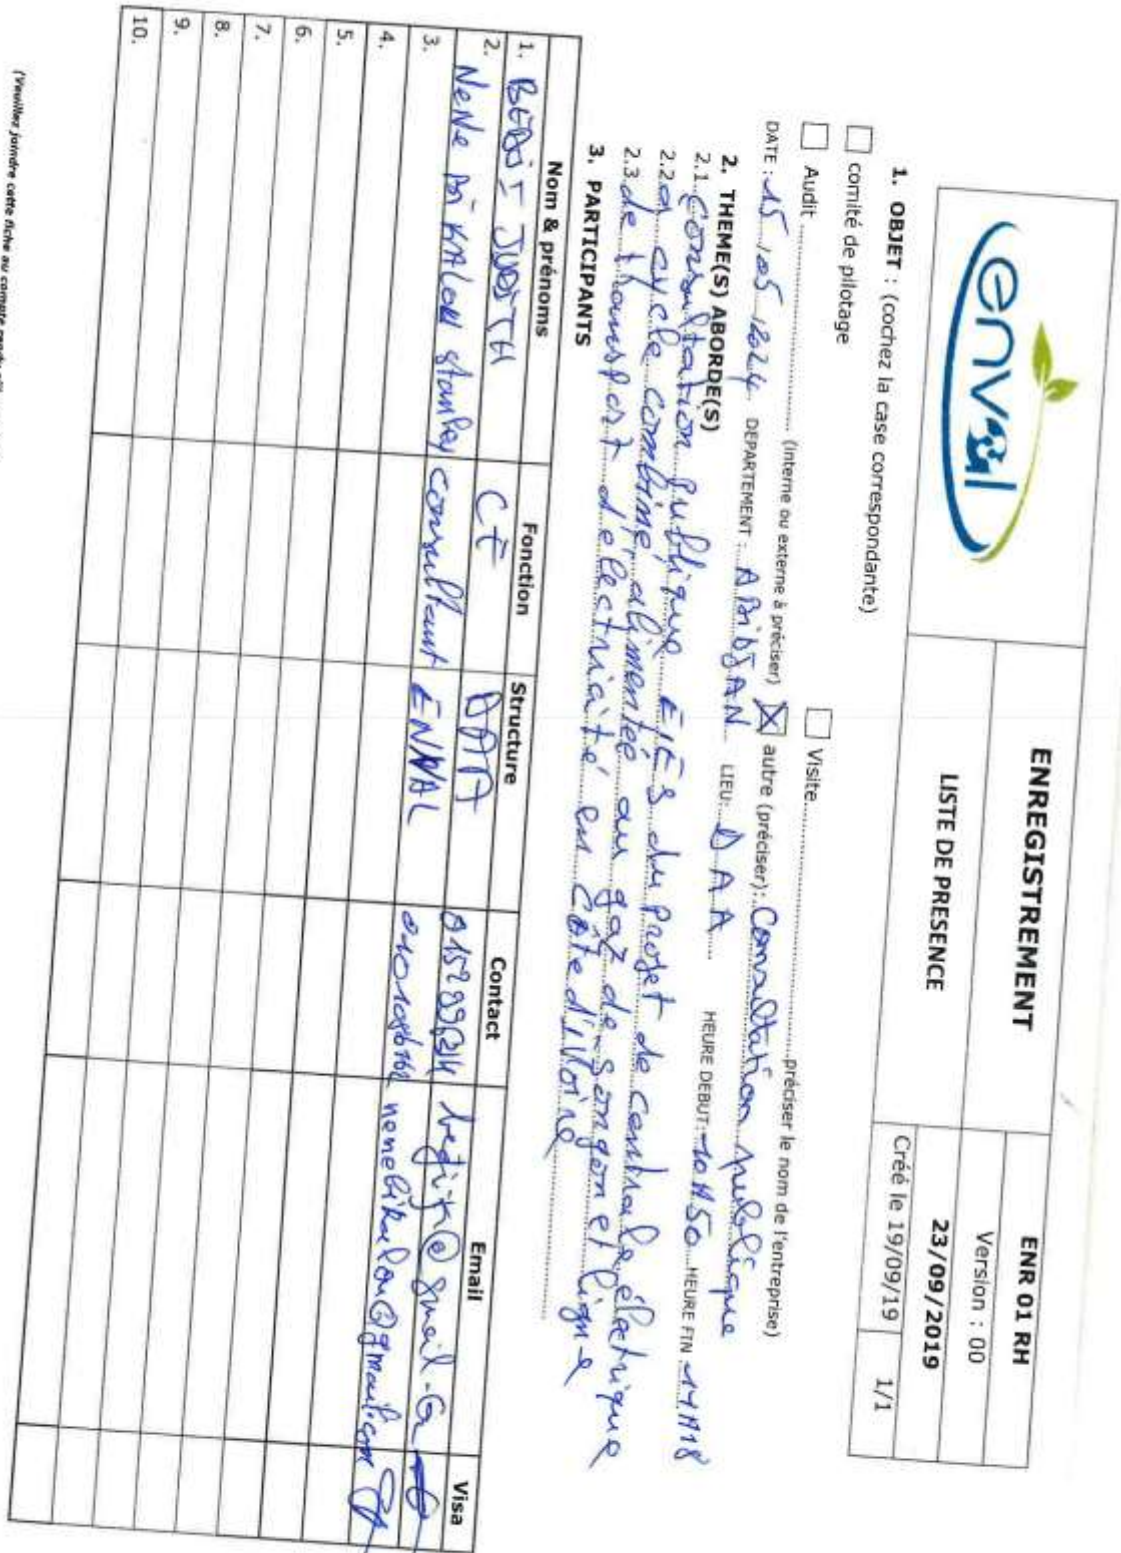 enval
ENREGISTREMENT
LISTE DE PRESENCE
ENR 01 RH
Version : 00
23/09/2019
Créé le 19/09/19
1/1
1. OBJET : (cochez la case correspondante)
comité de pilotage
Visite..........préciser le nom de l'entreprise)
Audit .......... (interne ou externe à préciser) X autre (préciser): Consultation publique
DATE : 15/05/2024 DEPARTEMENT : ABIDJAN LIEU: DAA HEURE DEBUT: 10H50 HEURE FIN: 11H18
2. THEME(S) ABORDE(S)
2.1 Consultation publique EIES du projet de centrale électrique
2.2 à cycle combiné, alimentée au gaz de songon et ligne
2.3 de transport d'électricité en Côte d'Ivoire
3. PARTICIPANTS
Nom & prénoms Fonction Structure Contact Email Visa
1. JUDITH CE DAA
2. NENE BI KALON Stanley consultant ENVAL nenebikalon@gmail.com
3.
4.
5.
6.
7.
8.
9.
10.
(Veuillez joindre cette fiche au compte rendu